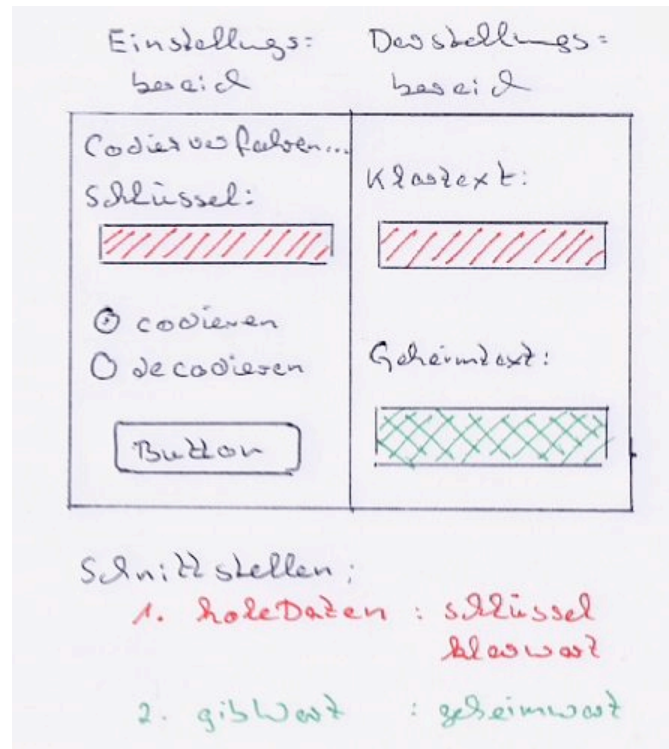 Einstellungs=
bereich
Darstellungs=
bereich
Codierverfahren...
Schlüssel:
codieren
decodieren
Button
Klartext:
Geheimtext:
Schnittstellen:
1. holeDaten : schlüssel
klarwort
2. gibWort : geheimwort